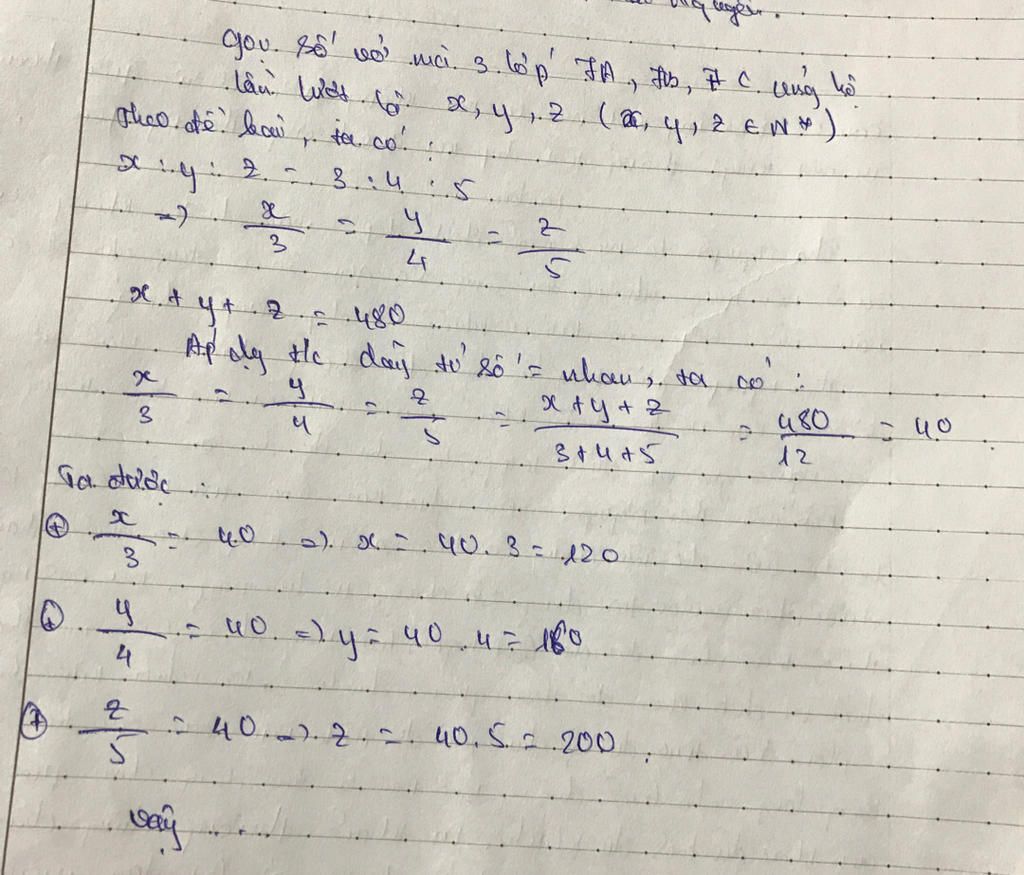 gọi số vở mà 3 lớp 7A, 7B, 7C ủng hộ
lần lượt là x, y, z (x, y, z ∈ N*)
Theo đề bài, ta có:
x : y : z = 3 : 4 : 5
=> x/3 = y/4 = z/5
x + y + z = 480
Áp dg t/c dãy tỉ số = nhau, ta có:
x/3 = y/4 = z/5 = (x + y + z)/(3 + 4 + 5) = 480/12 = 40
Ta được:
⊕ x/3 = 40 => x = 40 . 3 = 120
⊕ y/4 = 40 => y = 40 . 4 = 160
⊕ z/5 = 40 => z = 40 . 5 = 200
vậy .....